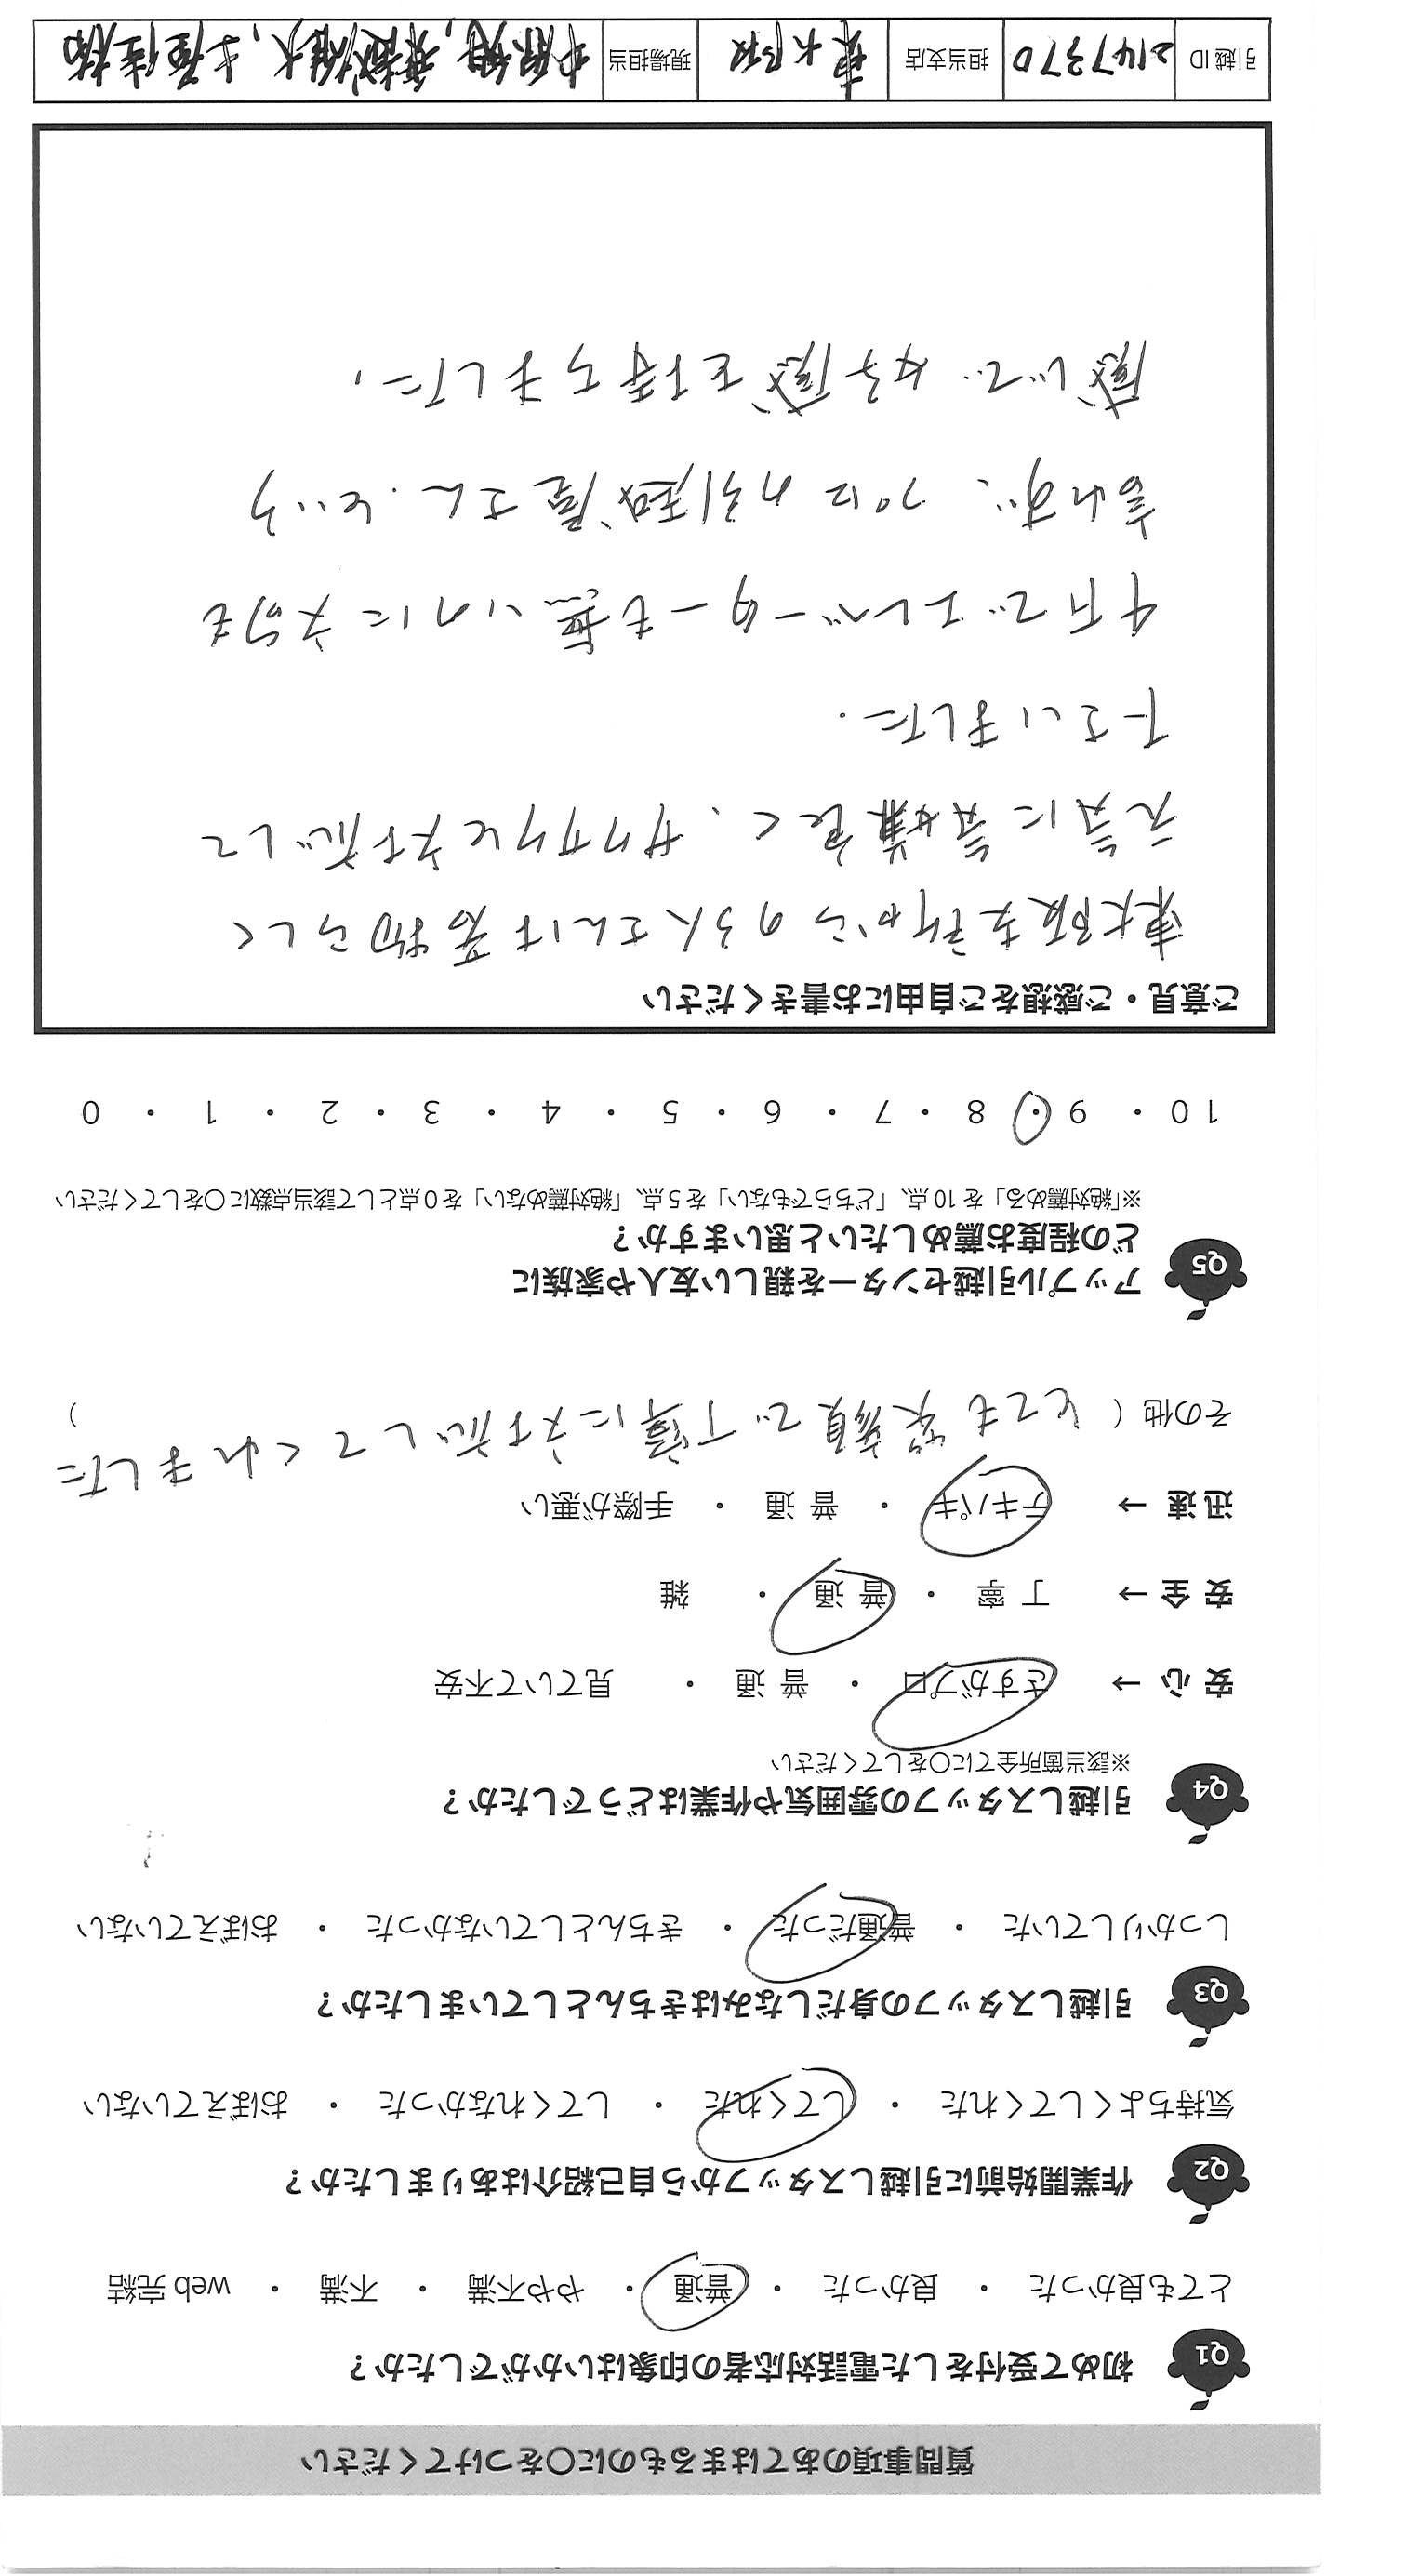 質問事項のあてはまるものに〇をつけてください
Q1 初めて受付をした電話対応者の印象はいかがでしたか？
とても良かった ・ 良かった ・ 普通 ・ やや不満 ・ 不満 ・ web 完結
Q2 作業開始前に引越しスタッフから自己紹介はありましたか？
気持ちよくしてくれた ・ してくれた ・ してくれなかった ・ おぼえていない
Q3 引越しスタッフの身だしなみはきちんとしていましたか？
しっかりしていた ・ 普通だった ・ きちんとしていなかった ・ おぼえていない
Q4 引越しスタッフの雰囲気や作業はどうでしたか？
※該当箇所全てに〇をしてください
安 心 → さすがプロ ・ 普 通 ・ 見ていて不安
安 全 → 丁 寧 ・ 普 通 ・ 雑
迅 速 → テキパキ ・ 普 通 ・ 手際が悪い
その他（ とても笑顔で丁寧に対応してくれました ）
Q5 アップル引越センターを親しい友人や家族に
どの程度お薦めしたいと思いますか？
※「絶対薦める」を 10 点、「どちらでもない」を 5 点、「絶対薦めない」を 0 点として該当点数に〇をしてください
10 ・ 9 ・ 8 ・ 7 ・ 6 ・ 5 ・ 4 ・ 3 ・ 2 ・ 1 ・ 0
ご意見・ご感想をご自由にお書きください
東大阪支所からの3人さんは若物らしく
元気に気嫌良く、サクサクと対応して
下さいました.
4Fでエレベーターも無いのに文句も
言わず、プロの引越屋さん.という
感じで 好感を持ちました,
引越 ID 2147370 担当支店 東大阪 現場担当